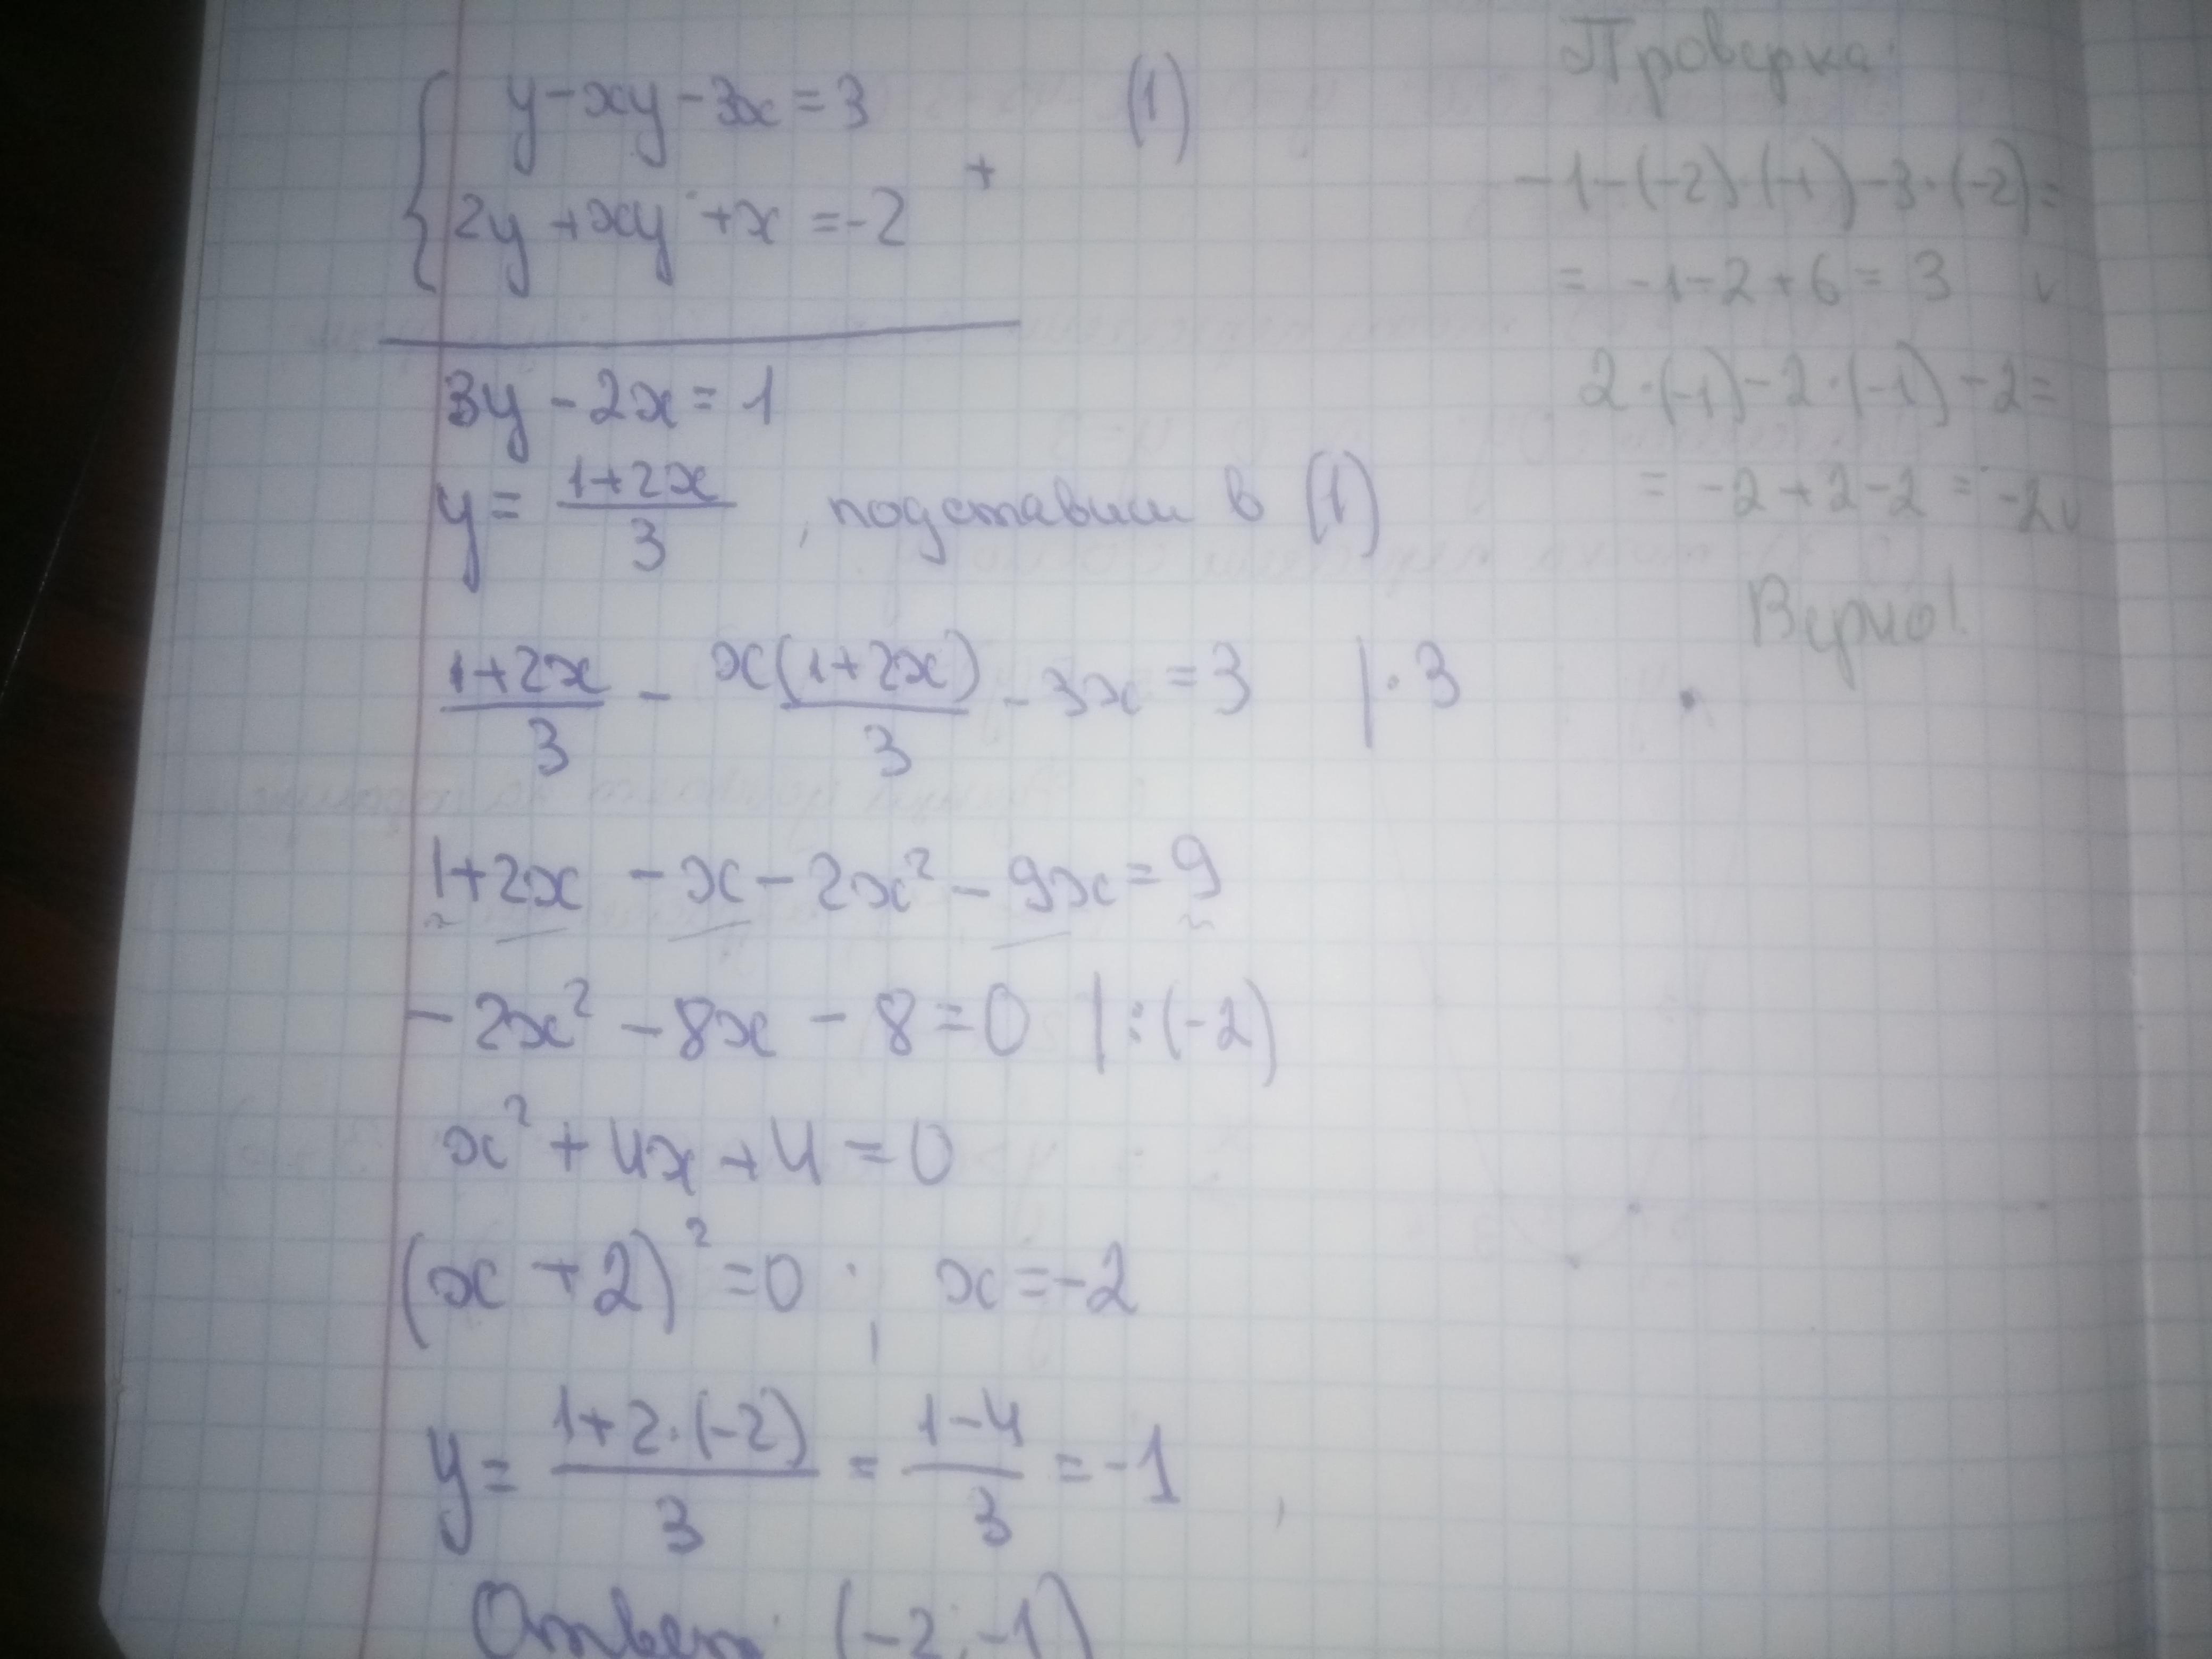 y-xy-3x=3 (1)
2y+xy+x=-2 +
3y-2x=1
y=(1+2x)/3, подставим в (1)
(1+2x)/3 - x(1+2x)/3 - 3x = 3 |·3
1+2x-x-2x²-9x=9
-2x²-8x-8=0 |:(-2)
x²+4x+4=0
(x+2)²=0; x=-2
y=(1+2·(-2))/3=(1-4)/3=-1
Ответ: (-2,-1)
Проверка:
-1-(-2)·(-1)-3·(-2)=
= -1-2+6=3 v
2·(-1)-2·(-1)-2=
= -2+2-2=-2 v
Верно!